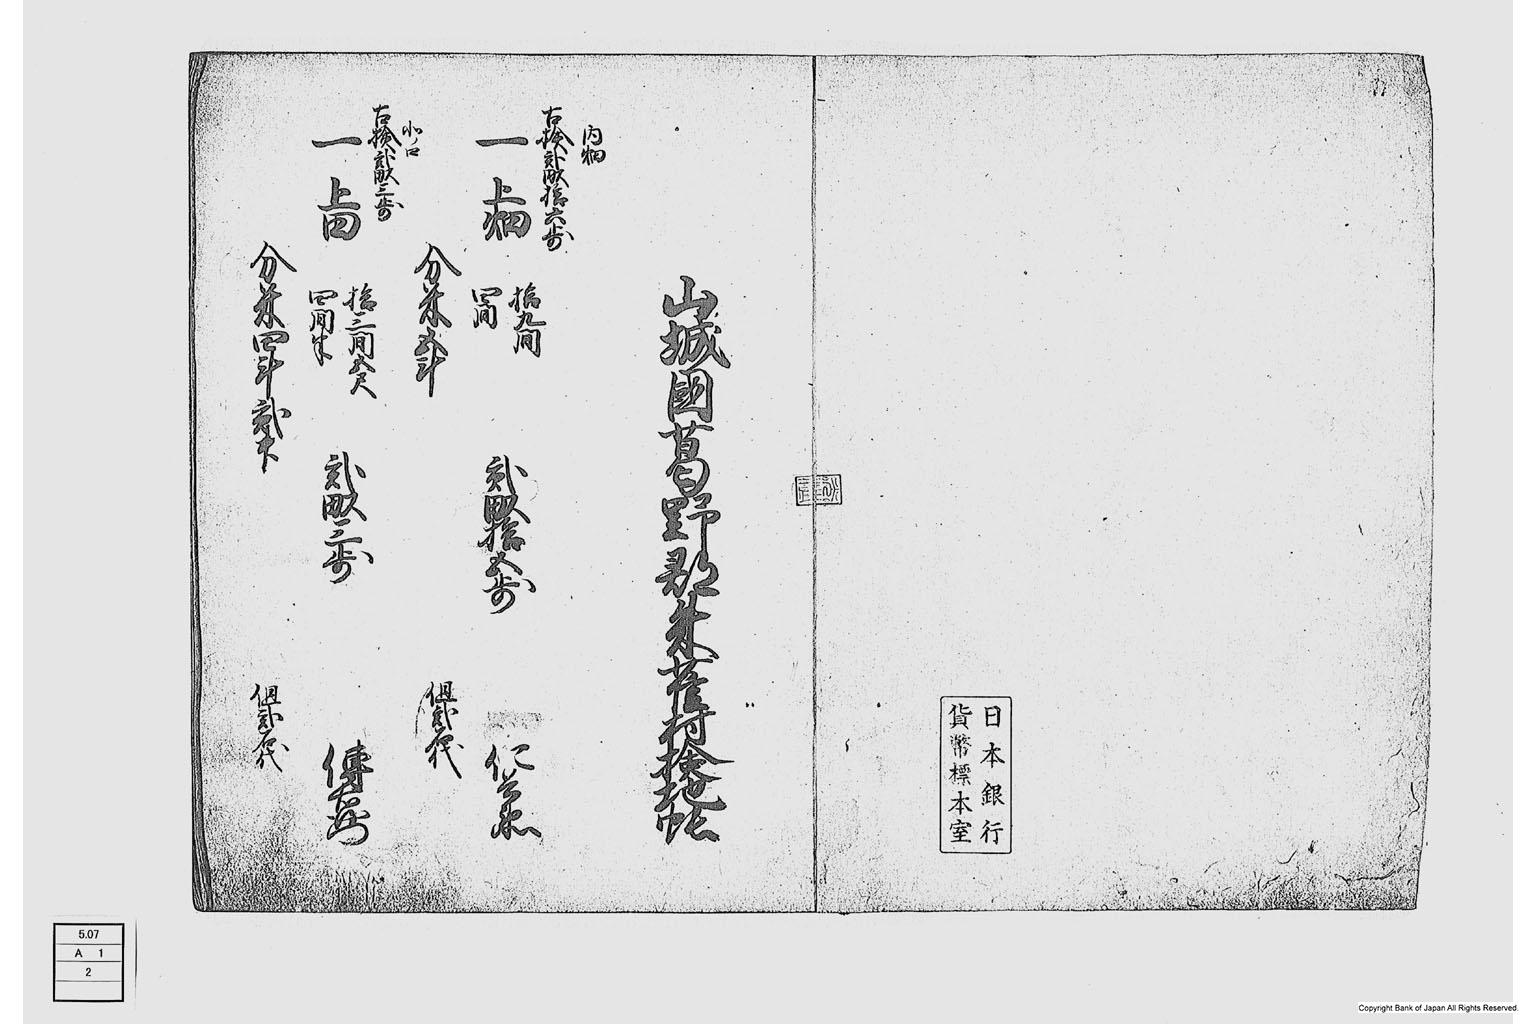 日本銀行
貨幣標本室
山城國葛野郡朱雀村検地帳
内畑
古検貳畝拾六歩
一上畑
拾九間
四間
貳畝拾六歩
分米五斗
但貳代
小ノ口
古検貳畝三歩
一上田
拾三間五尺
四間半
貳畝三歩
分米四斗貳升
但貳代
5.07
A 1
2
Copyright Bank of Japan All Rights Reserved.